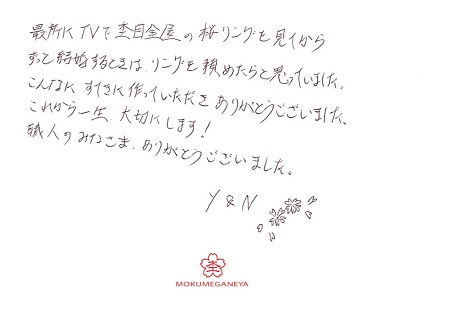 最初にTVで杢目金屋の桜リングを見てから
ずっと結婚するときは、リングを頼めたらと思っていました。
こんなにすてきに作っていただきありがとうございました。
これから一生、大切にします!
職人のみなさま、ありがとうございました。
Y & N
杢
MOKUMEGANEYA